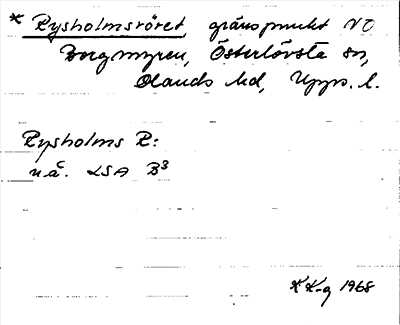 * Rysholmsröret, gränspunkt NO
Borgmyren, Österlövsta sn,
Olands hd, Upps. l.
Rysholms R:
u.å. LSA B3
KK-g 1968